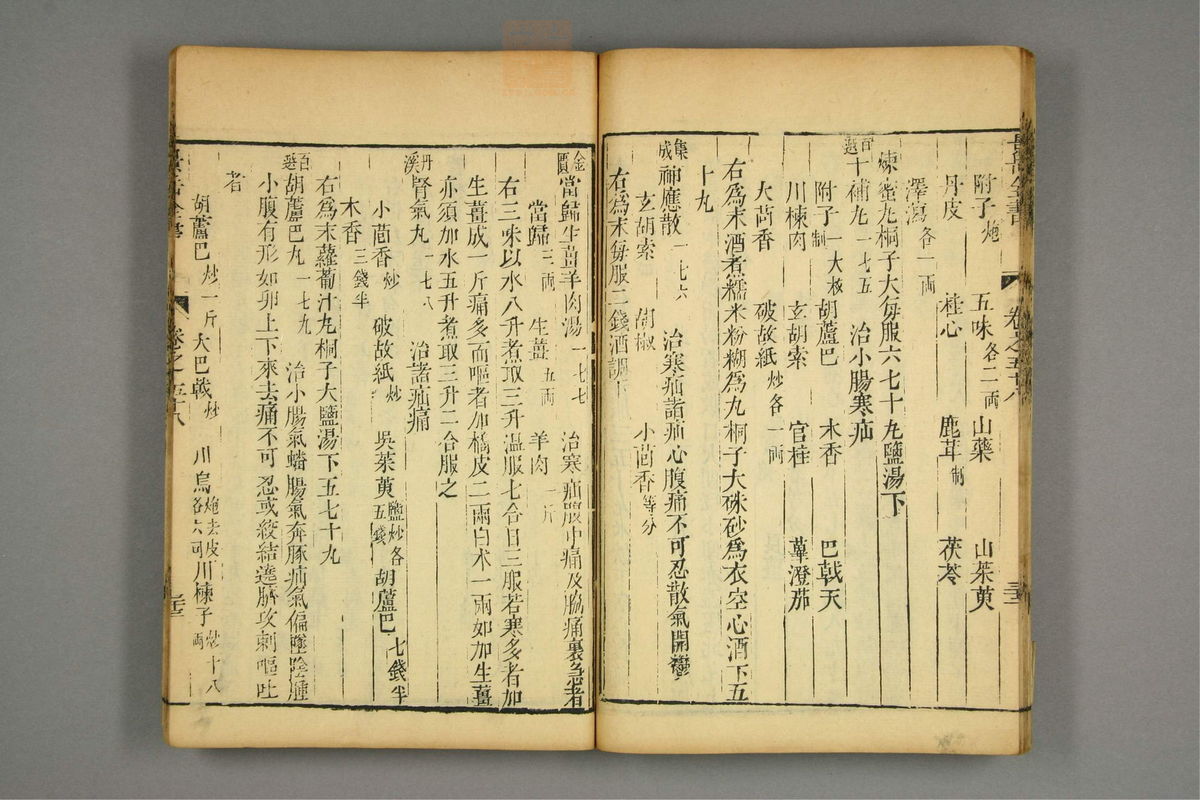 景岳全書 卷之五十八
附子炮 五味各二兩 山藥 山茱萸
丹皮 桂心 鹿茸制 茯苓
澤瀉各一兩
煉蜜丸桐子大每服六七十丸鹽湯下
百選十補丸一七五 治小腸寒疝
附子一大枚制 胡蘆巴 木香 巴戟天
川楝肉 玄胡索 官桂 蓽澄茄
大茴香 破故紙炒各一兩
右爲末酒煮糯米粉糊爲丸桐子大硃砂爲衣空心酒下五
十丸
集成神應散一七六 治寒疝諸疝心腹痛不可忍散氣開鬱
玄胡索 胡椒 小茴香等分
右爲末每服二錢酒調下
金匱當歸生薑羊肉湯一七七 治寒疝腹中痛及脇痛裏急者
當歸三兩 生薑五兩 羊肉一斤
右三味以水八升煮取三升溫服七合日三服若寒多者加
生薑成一斤痛多而嘔者加橘皮二兩白术一兩如加生薑
亦須加水五升煮取三升二合服之
丹溪腎氣丸一七八 治諸疝痛
小茴香炒 破故紙炒 吳茱萸鹽炒各五錢 胡蘆巴七錢半
木香三錢半
右爲末蘿蔔汁丸桐子大鹽湯下五七十丸
百選胡蘆巴丸一七九 治小腸氣蟠腸氣奔豚疝氣偏墜陰腫
小腹有形如卵上下來去痛不可忍或絞結遶臍攻刺嘔吐
者
胡蘆巴炒一斤 大巴戟炒 川烏炮去皮各六兩 川楝子炒十八兩
景岳全書 卷之五十八